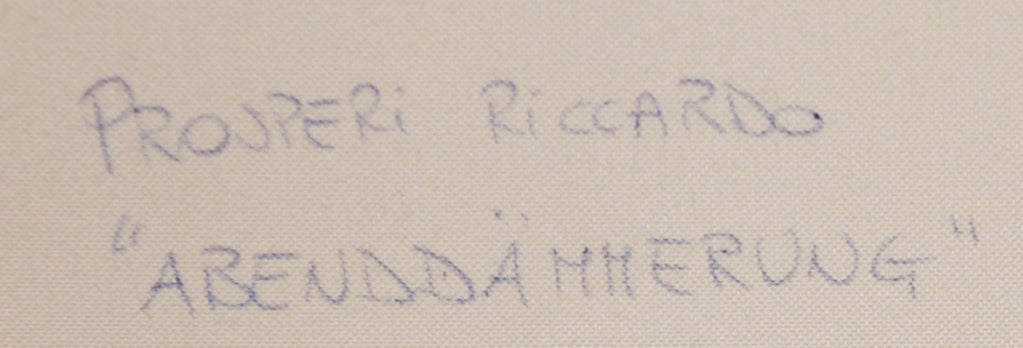 PROSPERi RiCCARDO
"ABENDDÄMMERUNG"